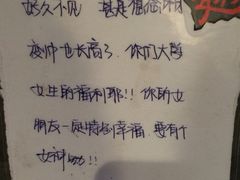 好久不见 甚是
变帅也长高了,你们大学
女生的福利耶!!你的女
朋友一定特别幸福,要有个
女神